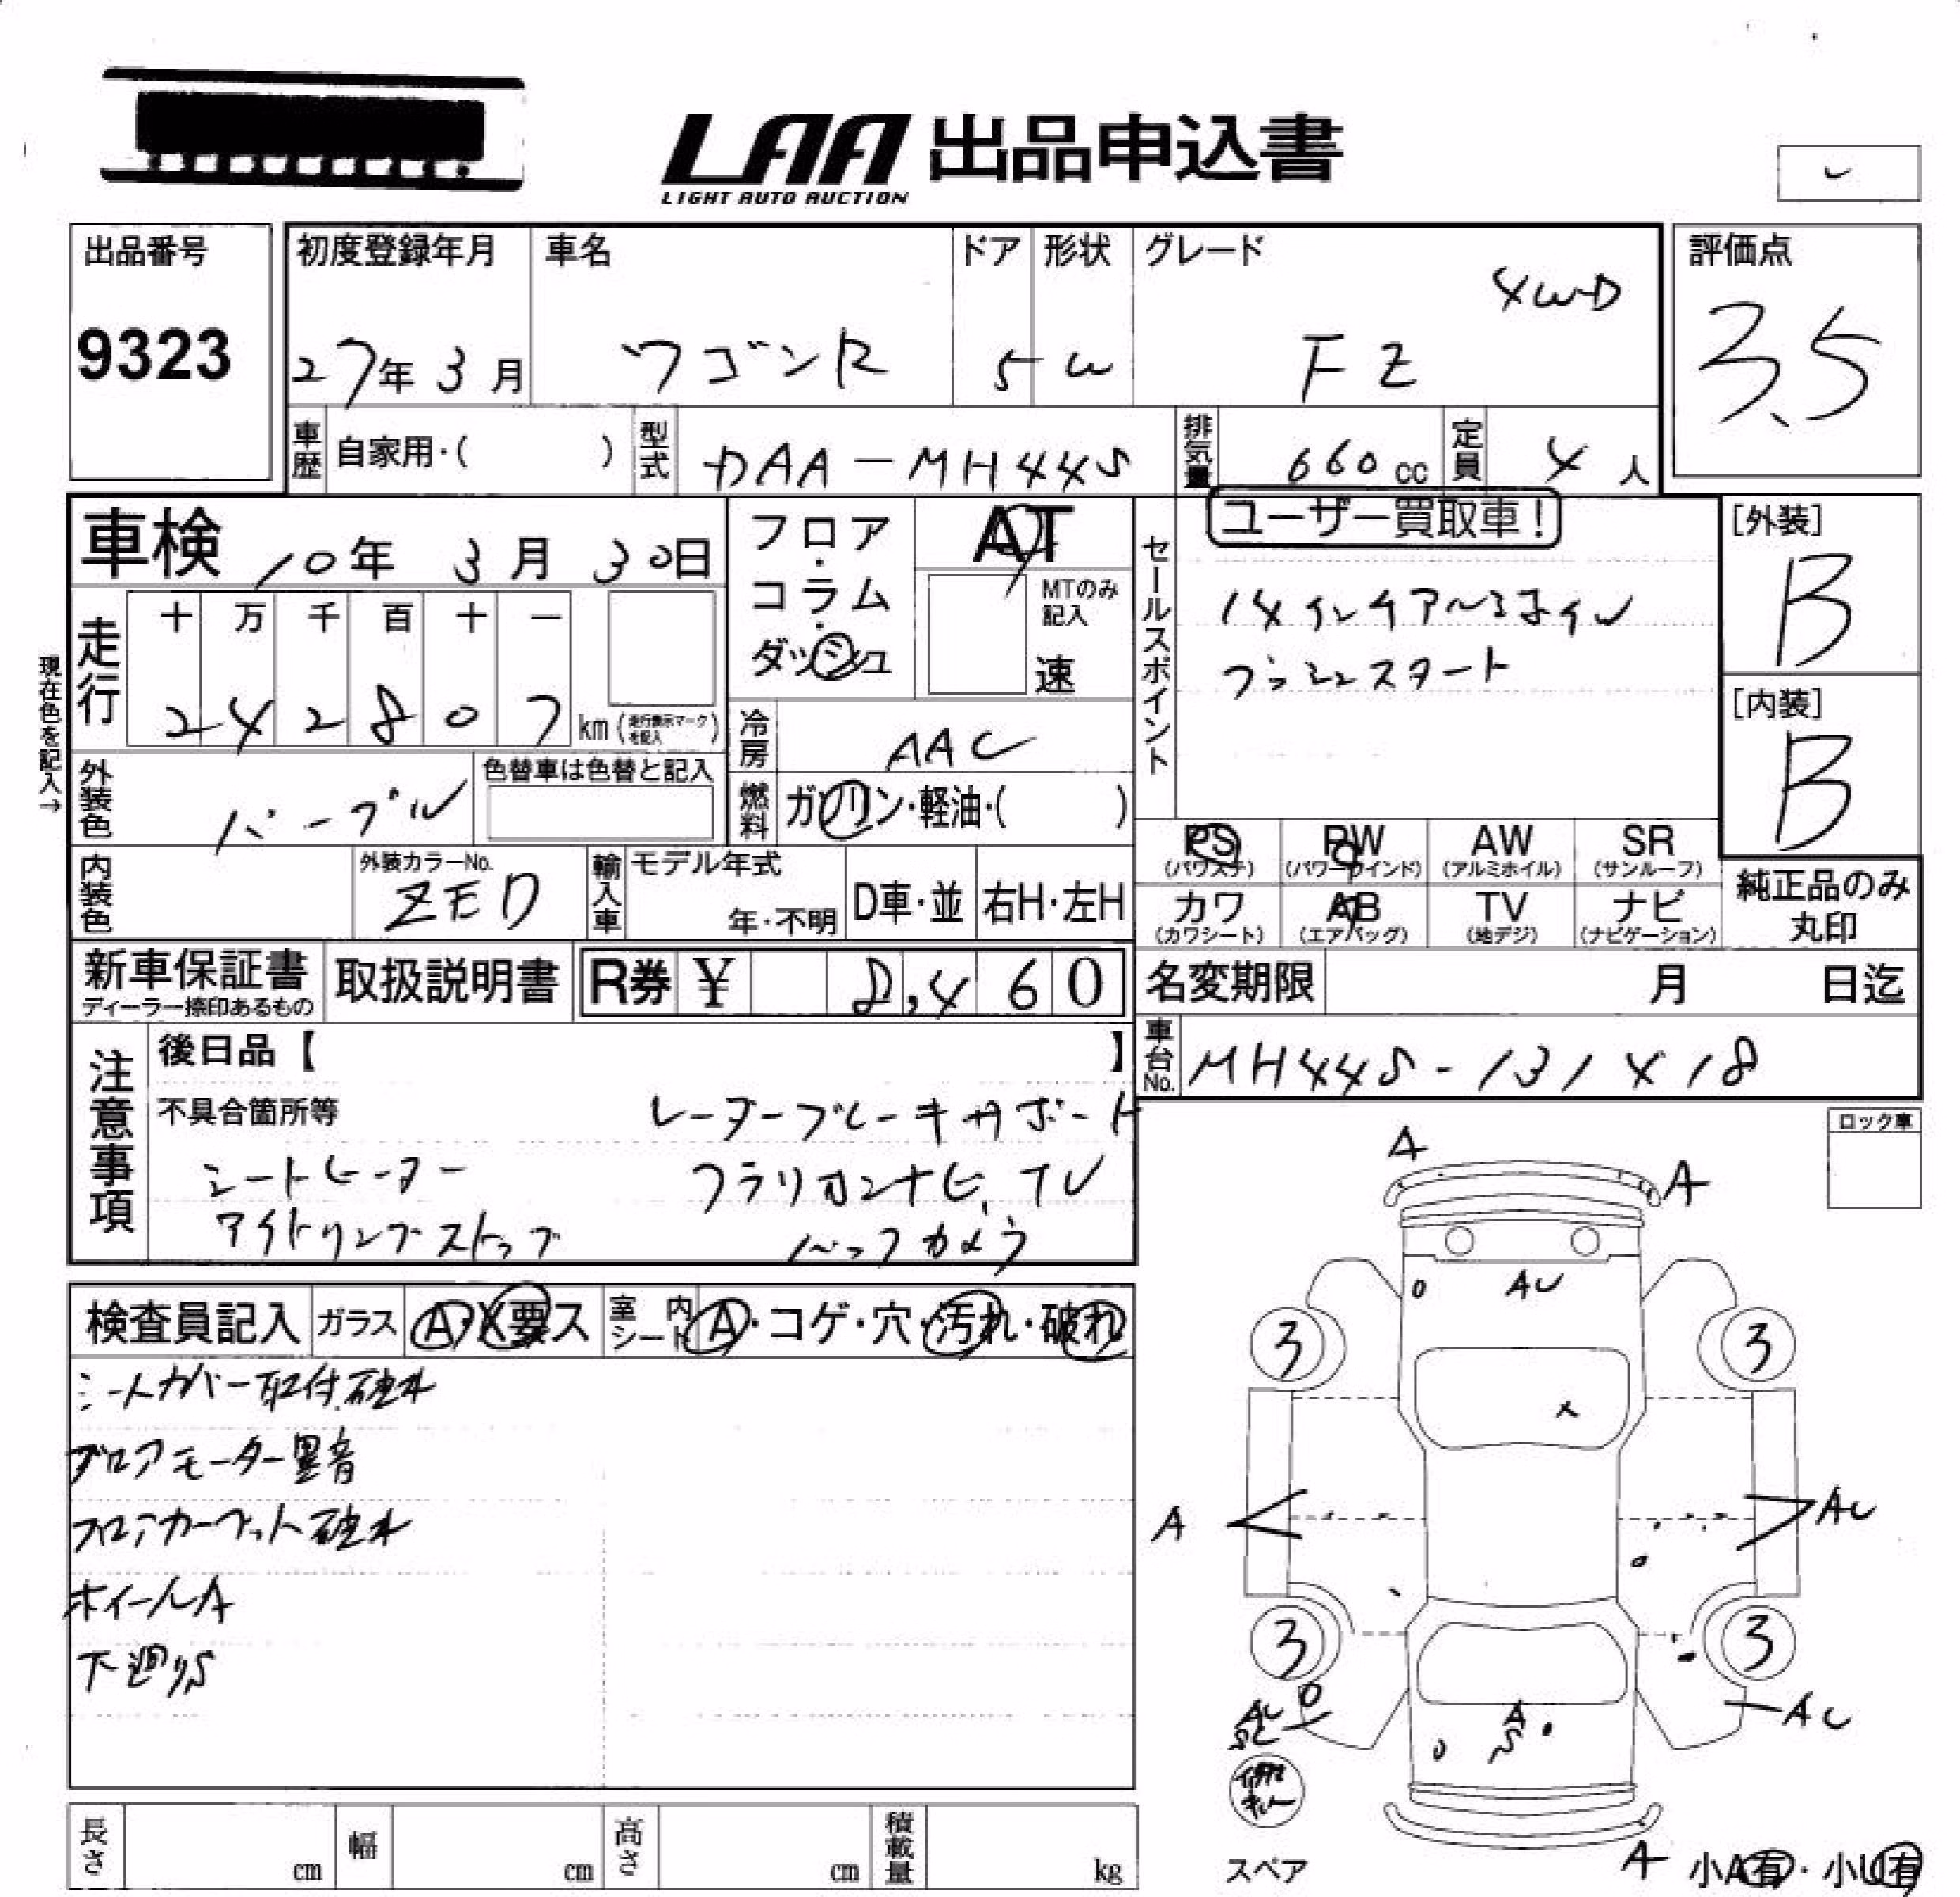 LAA 出品申込書
LIGHT AUTO AUCTION
出品番号
9323
初度登録年月
27年 3月
車名
ワゴンR
ドア
5
形状
W
グレード
4WD
FZ
評価点
3.5
車歴 自家用・( )
型式 DAA-MH44S
排気量 660 cc
定員 4 人
車検 10年 3月 30日
フロア・コラム・ダッシュ
AT
MTのみ記入
速
セールスポイント
ユーザー買取車!
14インチアルミホイル
プッシュスタート
[外装]
B
[内装]
B
現在色を記入→
走行
十 万 千 百 十 一
2 4 2 8 0 7 km (走行表示マークを記入)
冷房 AAC
燃料 ガソリン・軽油・( )
外装色 パープル
色替車は色替と記入
内装色
外装カラーNo.
ZED
輸入車 モデル年式
年・不明
D車・並 右H・左H
PS (パワステ)
PW (パワーウインド)
AW (アルミホイル)
SR (サンルーフ)
カワ (カワシート)
AB (エアバッグ)
TV (地デジ)
ナビ (ナビゲーション)
純正品のみ丸印
新車保証書
ディーラー捺印あるもの
取扱説明書
R券 ¥ 8,460
名変期限 月 日迄
車台No. MH44S-131418
注意事項
後日品【 】
不具合箇所等
レーダーブレーキサポート
シートヒーター
クラリオンナビ、TV
アイドリングストップ
バックカメラ
ロック車
検査員記入
ガラス A・X要ス
室内シート A・コゲ・穴・汚れ・破れ
シートカバー取付破れ
ブロアモーター異音
フロアカーペット破れ
ホイールA
下廻りS
A
A
AU
3
3
X
A
AU
3
3
AU
AU
A
S
スペア
A
小A有・小U有
長さ cm
幅 cm
高さ cm
積載量 kg